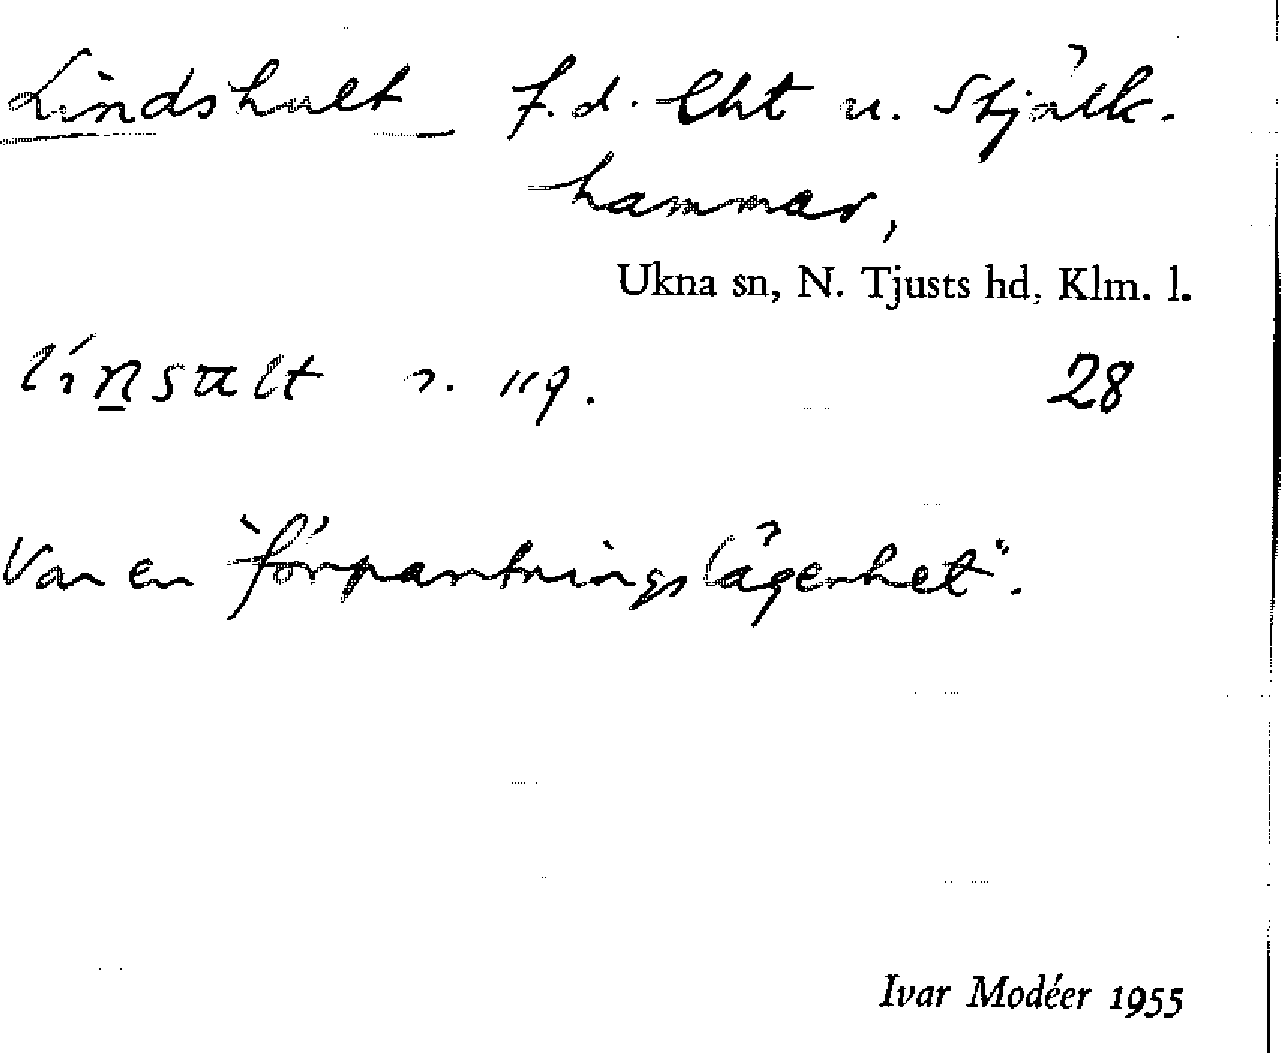 Lindshult f.d. lht u. Stjälk-
hammar,
Ukna sn, N. Tjusts hd, Klm. l.
28
Var en "förpantningslägenhet".
Ivar Modéer 1955